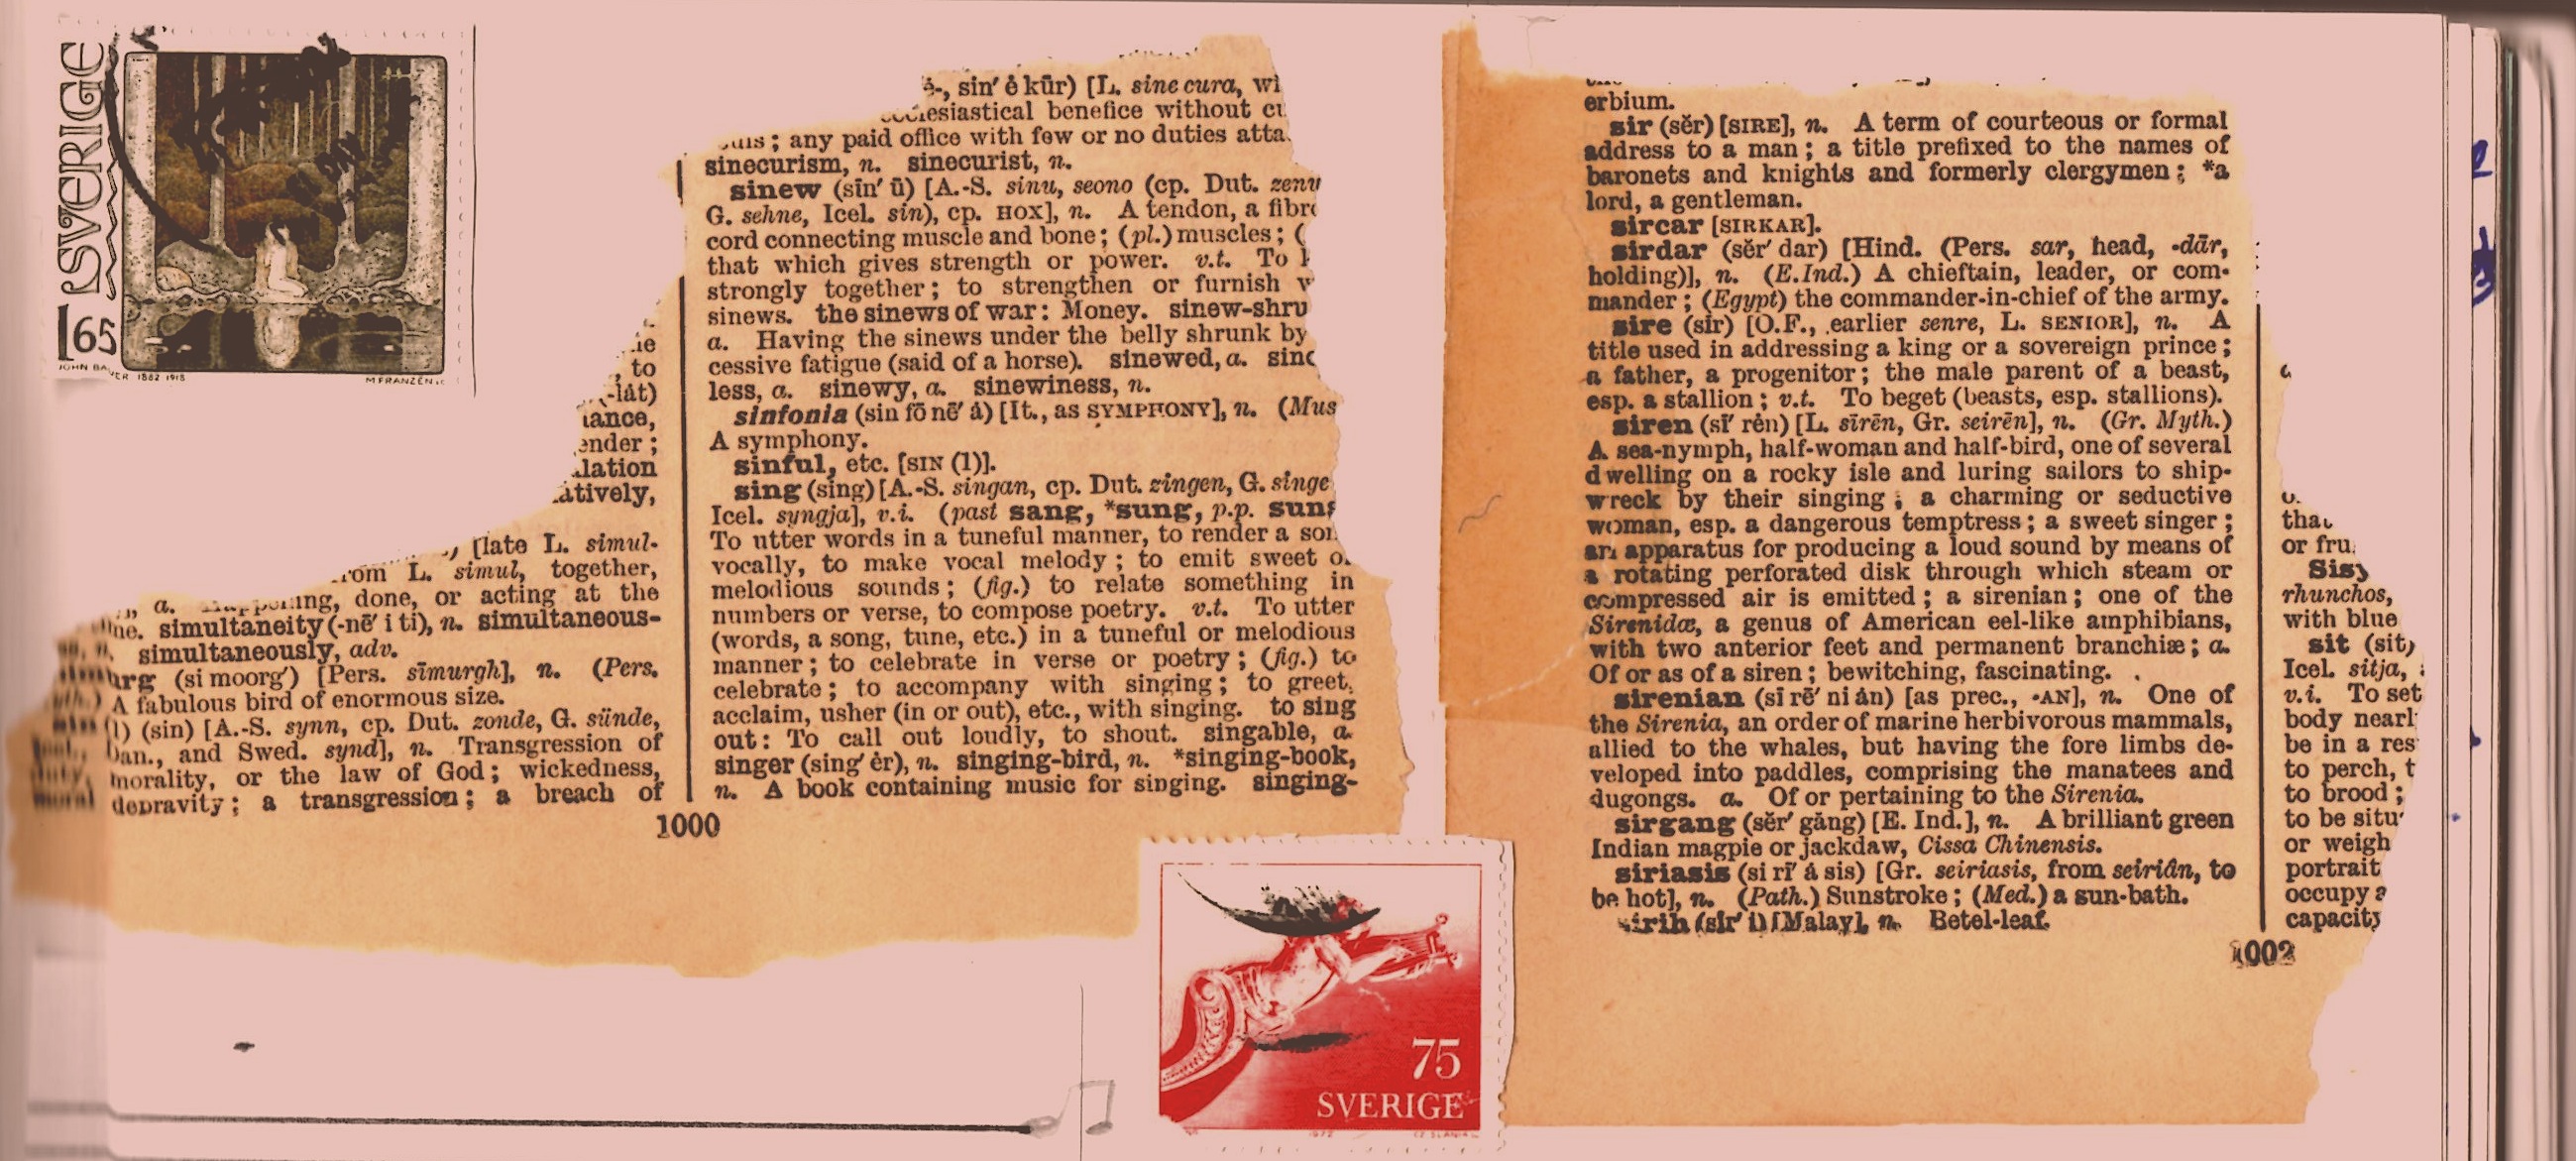 SVERIGE
165
JOHN BAUER 1882 1918
M FRANZÉN
to
(-lát)
ender ;
[late L. simul-
L. simul, together,
a. done, or acting at the
simultaneity (-nē′ i ti), n. simultaneous-
simultaneously, adv.
(si moorg′) [Pers. sīmurgh], n. (Pers.
A fabulous bird of enormous size.
(sin) [A.-S. synn, cp. Dut. zonde, G. sünde,
Dan., and Swed. synd], n. Transgression of
morality, or the law of God; wickedness,
depravity; a transgression; a breach of
1000
sin′ ė kūr) [L. sine cura,
benefice without
; any paid office with few or no duties
sinecurism, n. sinecurist, n.
sinew (sīn′ ū) [A.-S. sinu, seono (cp. Dut.
G. sehne, Icel. sin), cp. HOX], n. A tendon, a
cord connecting muscle and bone; (pl.) muscles; (
that which gives strength or power. v.t. To
strongly together; to strengthen or furnish
sinews. the sinews of war: Money. sinew-shru
a. Having the sinews under the belly shrunk by
cessive fatigue (said of a horse). sinewed, a.
less, a. sinewy, a. sinewiness, n.
sinfonia (sin fō nē′ á) [It., as SYMPHONY], n. (Mus
A symphony.
sinful, etc. [SIN (1)].
sing (sing) [A.-S. singan, cp. Dut. zingen, G. singe
Icel. syngja], v.i. (past sang, *sung, p.p.
To utter words in a tuneful manner, to render a
vocally, to make vocal melody; to emit sweet
melodious sounds; (fig.) to relate something in
numbers or verse, to compose poetry. v.t. To utter
(words, a song, tune, etc.) in a tuneful or melodious
manner; to celebrate in verse or poetry; (fig.) to
celebrate; to accompany with singing; to greet,
acclaim, usher (in or out), etc., with singing. to sing
out: To call out loudly, to shout. singable, a.
singer (sing′ ėr), n. singing-bird, n. *singing-book,
n. A book containing music for singing. singing-
75
SVERIGE
erbium.
sir (sĕr) [SIRE], n. A term of courteous or formal
address to a man; a title prefixed to the names of
baronets and knights and formerly clergymen; *a
lord, a gentleman.
sircar [SIRKAR].
sirdar (sĕr′ dar) [Hind. (Pers. sar, head, -dār,
holding)], n. (E.Ind.) A chieftain, leader, or com-
mander; (Egypt) the commander-in-chief of the army.
sire (sīr) [O.F., earlier senre, L. SENIOR], n. A
title used in addressing a king or a sovereign prince;
a father, a progenitor; the male parent of a beast,
esp. a stallion; v.t. To beget (beasts, esp. stallions).
siren (sī′ rėn) [L. sīrēn, Gr. seirēn], n. (Gr. Myth.)
A sea-nymph, half-woman and half-bird, one of several
dwelling on a rocky isle and luring sailors to ship-
wreck by their singing; a charming or seductive
woman, esp. a dangerous temptress; a sweet singer;
an apparatus for producing a loud sound by means of
a rotating perforated disk through which steam or
compressed air is emitted; a sirenian; one of the
Sirenidæ, a genus of American eel-like amphibians,
with two anterior feet and permanent branchiæ; a.
Of or as of a siren; bewitching, fascinating.
sirenian (sī rē′ ni án) [as prec., -AN], n. One of
the Sirenia, an order of marine herbivorous mammals,
allied to the whales, but having the fore limbs de-
veloped into paddles, comprising the manatees and
dugongs. a. Of or pertaining to the Sirenia.
sirgang (sĕr′ găng) [E. Ind.], n. A brilliant green
Indian magpie or jackdaw, Cissa Chinensis.
siriasis (si rī′ á sis) [Gr. seiriasis, from seiriân, to
be hot], n. (Path.) Sunstroke; (Med.) a sun-bath.
sirih (sīr′ i) [Malay], n. Betel-leaf.
1002
or
rhunchos,
with blue
sit (sit)
Icel. sitja,
v.i. To set
body nearl
be in a res
to perch, t
to brood;
to be situ
or weigh
portrait
occupy a
capacity